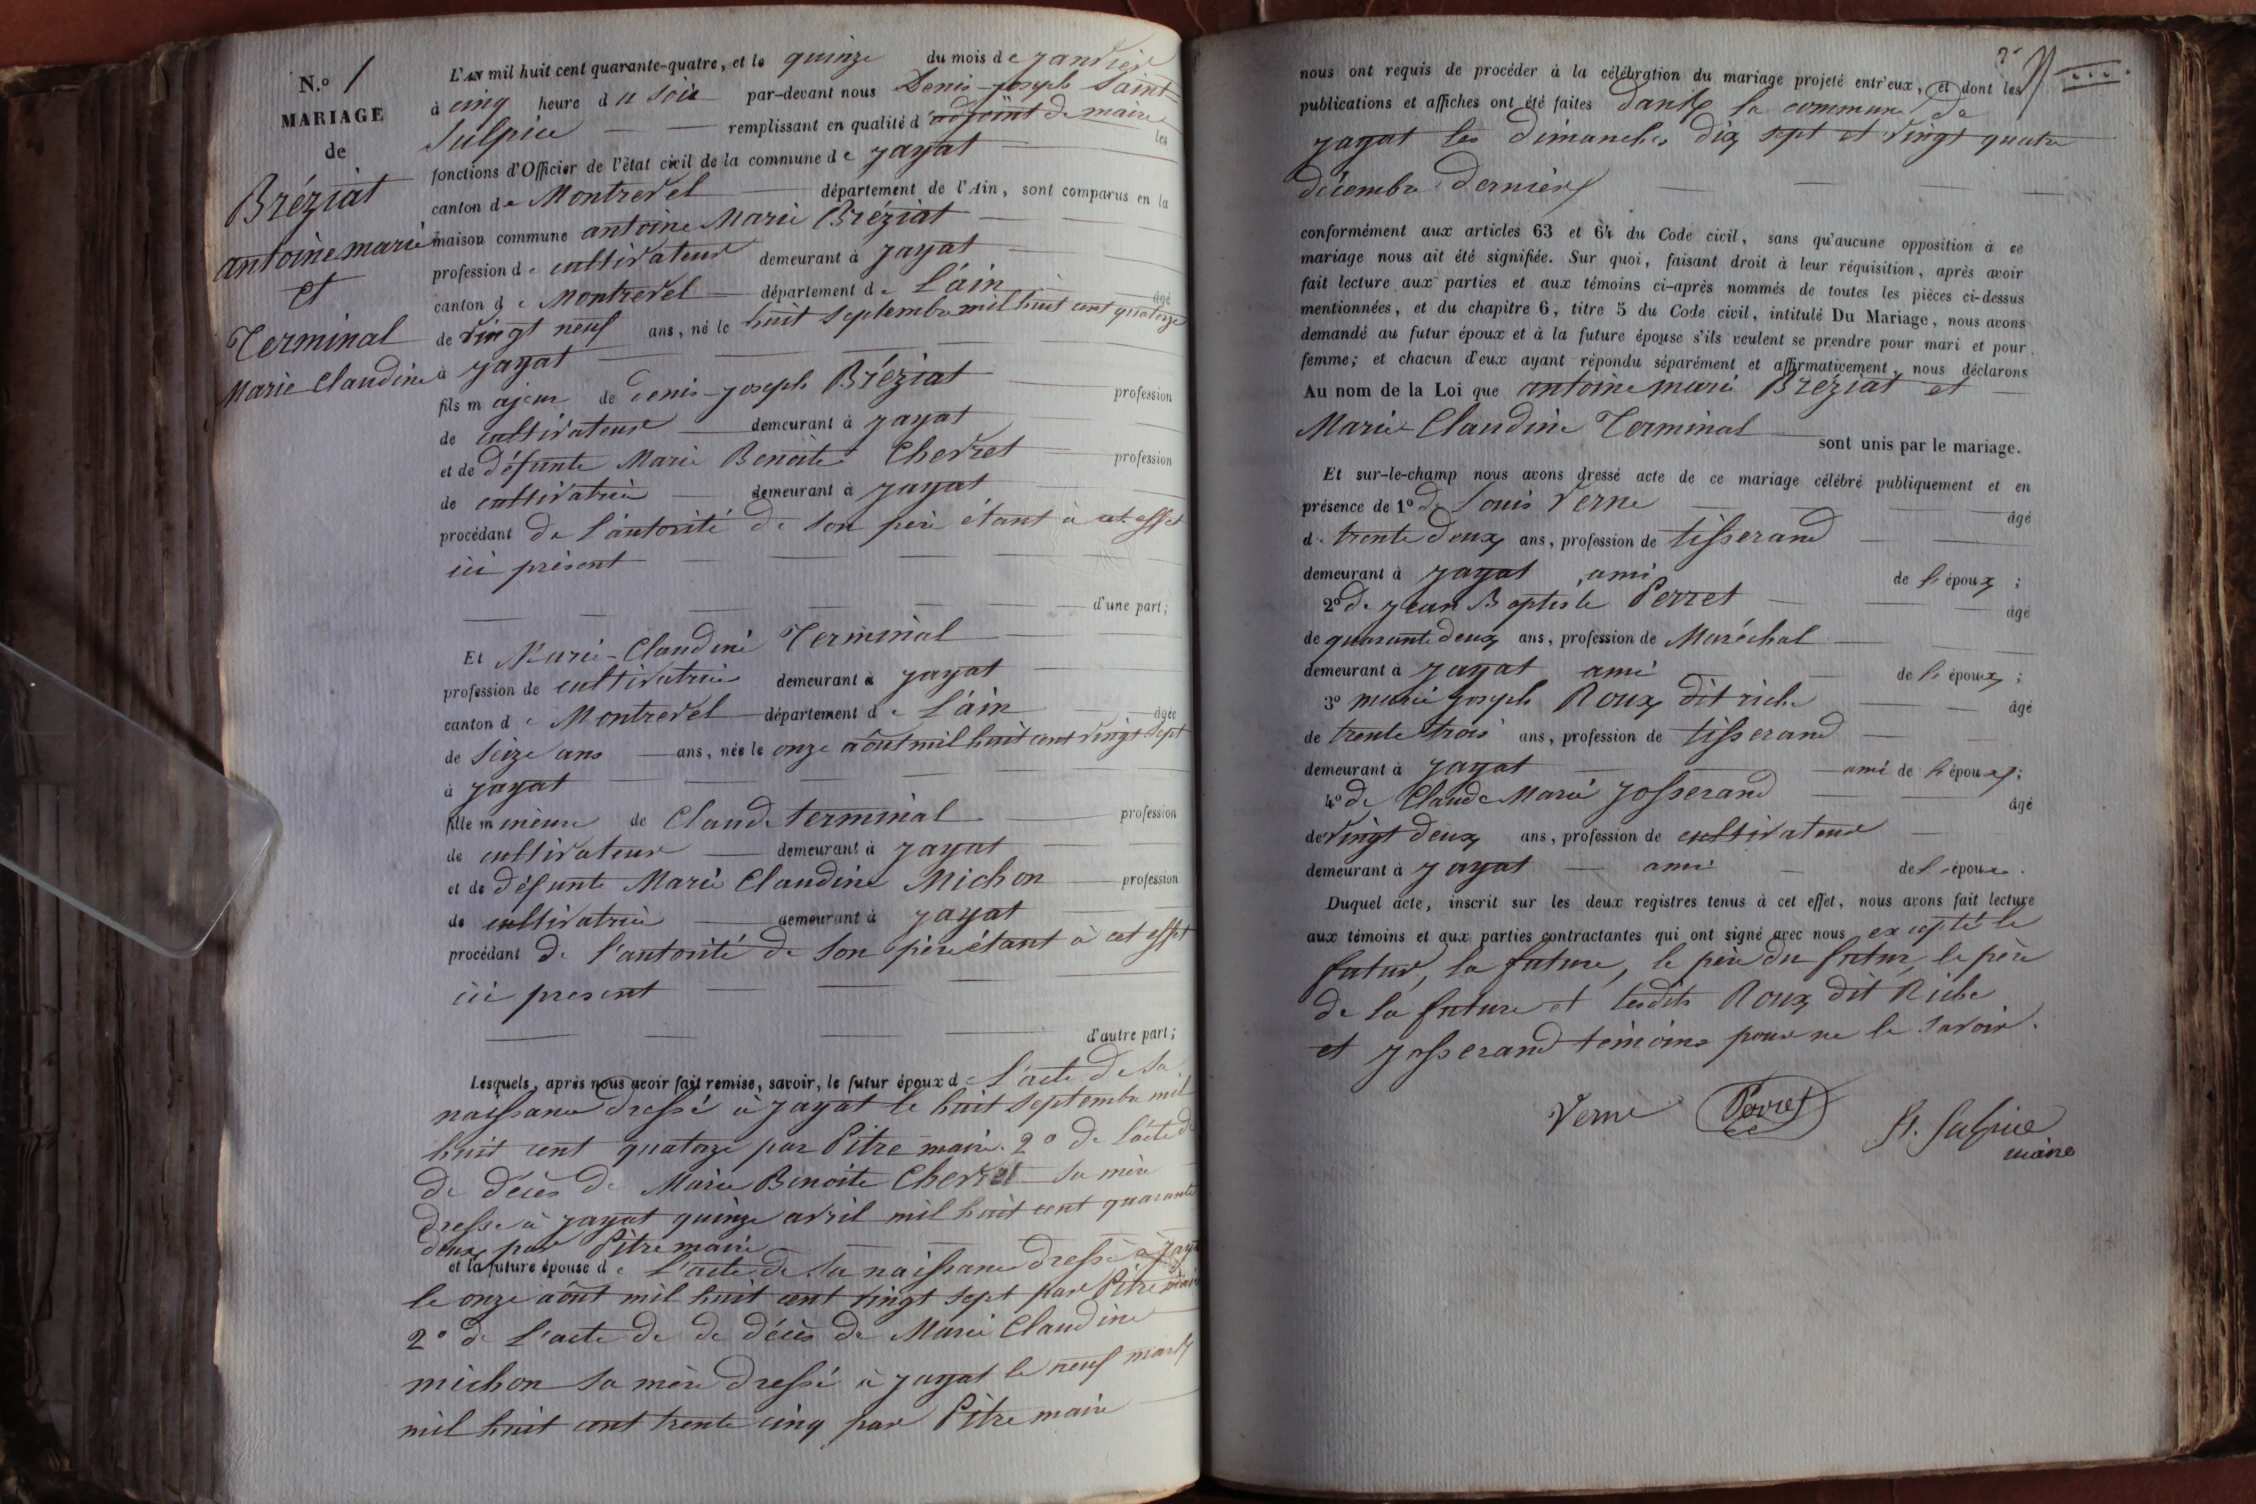 N.o 1
MARIAGE
de
Bréziat
antoine marie
et
Terminal
Marie Claudine
L'AN mil huit cent quarante-quatre, et le quinze du mois de janvier
à cinq heure du soir par-devant nous Denis-joseph Saint-
Sulpice remplissant en qualité d'adjoint de maire les
fonctions d'Officier de l'état civil de la commune de jayat
canton de Montrevel département de l'Ain, sont comparus en la
maison commune antoine Marie Bréziat
profession de cultivateur demeurant à jayat
canton de Montrevel département de L'ain âgé
de vingt neuf ans, né le huit septembre mil huit cent quatorze
à jayat
fils majeur de denis-joseph Bréziat profession
de cultivateur demeurant à jayat
et de défunte Marie Benoite Chevret profession
de cultivatrice demeurant à jayat
procédant de l'autorité de son père étant à cet effet
ici présent
d'une part;
Et Marie-Claudine Terminal
profession de cultivatrice demeurant à jayat
canton de Montrevel département de L'ain âgée
de seize ans ans, née le onze août mil huit cent vingt sept
à jayat
fille mineure de Claude terminal profession
de cultivateur demeurant à jayat
et de défunte Marie Claudine Michon profession
de cultivatrice demeurant à jayat
procédant de l'autorité de son père étant à cet effet
ici present
d'autre part;
Lesquels, après nous avoir fait remise, savoir, le futur époux de L'acte de sa
naissance dressé à jayat le huit septembre mil
huit cent quatorze par Pitre maire. 2o de l'acte de
de décès de Marie Benoite Chevret sa mère
dressé à jayat quinze avril mil huit cent quarante
deux par Pitre maire
et la future épouse de L'acte de sa naissance dressé à jayat
le onze août mil huit cent vingt sept par Pitre maire
2o de L'acte de de décès de Marie Claudine
michon sa mère dressé à jayat le neuf mars
mil huit cent trente cinq par Pitre maire
nous ont requis de procéder à la célébration du mariage projeté entr'eux, et dont les
publications et affiches ont été faites dans la commune de
jayat les dimanches dix sept et vingt quatre
décembre derniers
conformément aux articles 63 et 64 du Code civil, sans qu'aucune opposition à ce
mariage nous ait été signifiée. Sur quoi, faisant droit à leur réquisition, après avoir
fait lecture aux parties et aux témoins ci-après nommés de toutes les pièces ci-dessus
mentionnées, et du chapitre 6, titre 5 du Code civil, intitulé Du Mariage, nous avons
demandé au futur époux et à la future épouse s'ils veulent se prendre pour mari et pour
femme; et chacun d'eux ayant répondu séparément et affirmativement, nous déclarons
Au nom de la Loi que antoine marie Bréziat et
Marie-Claudine Terminal sont unis par le mariage.
Et sur-le-champ nous avons dressé acte de ce mariage célébré publiquement et en
présence de 1o de Louis Verne âgé
de trente deux ans, profession de tisserand
demeurant à jayat ami de l'époux;
2o de jean Baptiste Perret âgé
de quarante deux ans, profession de Maréchal
demeurant à jayat ami de l'époux;
3o marie joseph Roux dit riche âgé
de trente trois ans, profession de tisserand
demeurant à jayat ami de l'époux;
4o de Claude Marie josserand âgé
de vingt deux ans, profession de cultivateur
demeurant à jayat ami de l'épouse.
Duquel acte, inscrit sur les deux registres tenus à cet effet, nous avons fait lecture
aux témoins et aux parties contractantes qui ont signé avec nous excepté le
futur, la future, le père du futur, le père
de la future et lesdits Roux dit Riche
et josserand témoins pour ne le savoir.
Verne Perret St. Sulpice
maire